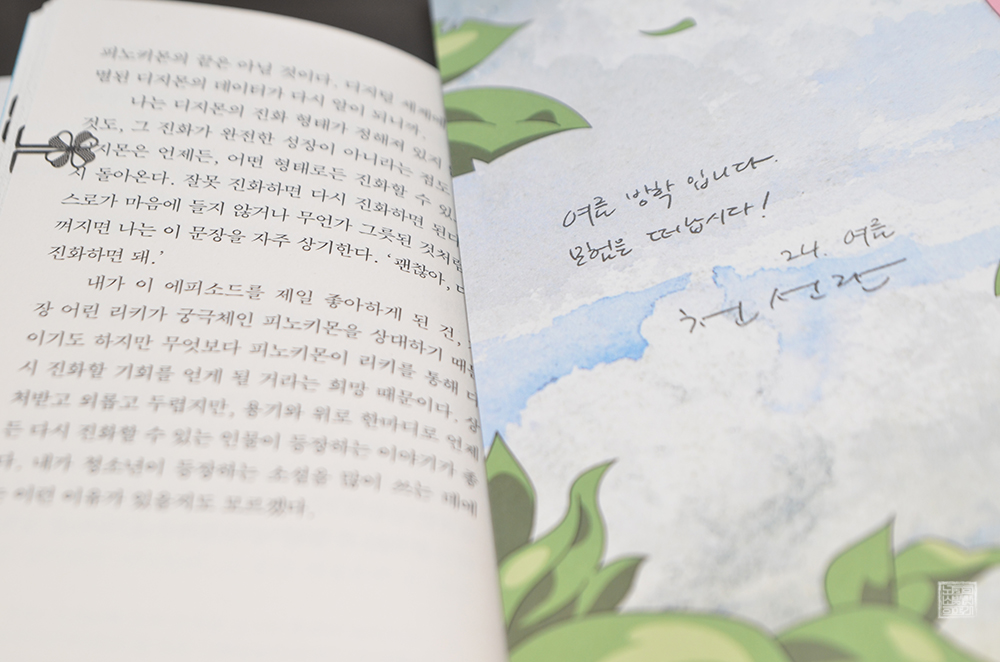 피노키몬의 끝은 아닐 것이다. 디지털 세계에
멸된 디지몬의 데이터가 다시 알이 되니까.
나는 디지몬의 진화 형태가 정해져 있지
것도, 그 진화가 완전한 성장이 아니라는 점도
지몬은 언제든, 어떤 형태로든 진화할 수 있
시 돌아온다. 잘못 진화하면 다시 진화하면 된다
스로가 마음에 들지 않거나 무언가 그릇된 것처럼
껴지면 나는 이 문장을 자주 상기한다. ‘괜찮아, 다
진화하면 돼.’
내가 이 에피소드를 제일 좋아하게 된 건,
장 어린 리키가 궁극체인 피노키몬을 상대하기 때문
이기도 하지만 무엇보다 피노키몬이 리키를 통해 다
시 진화할 기회를 얻게 될 거라는 희망 때문이다. 상
처받고 외롭고 두렵지만, 용기와 위로 한마디로 언제
든 다시 진화할 수 있는 인물이 등장하는 이야기가 좋
다. 내가 청소년이 등장하는 소설을 많이 쓰는 데에
는 이런 이유가 있을지도 모르겠다.
여름 방학 입니다.
모험을 떠납시다!
24. 여름
천선란